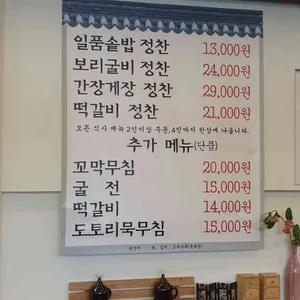 일품솥밥 정찬 13,000원
보리굴비 정찬 24,000원
간장게장 정찬 29,000원
떡갈비 정찬 21,000원
모든 식사 메뉴 2인이상 주문, 4인까지 한상에 나옵니다.
추가 메뉴(단품)
꼬막무침 20,000원
굴 전 15,000원
떡갈비 14,000원
도토리묵무침 15,000원